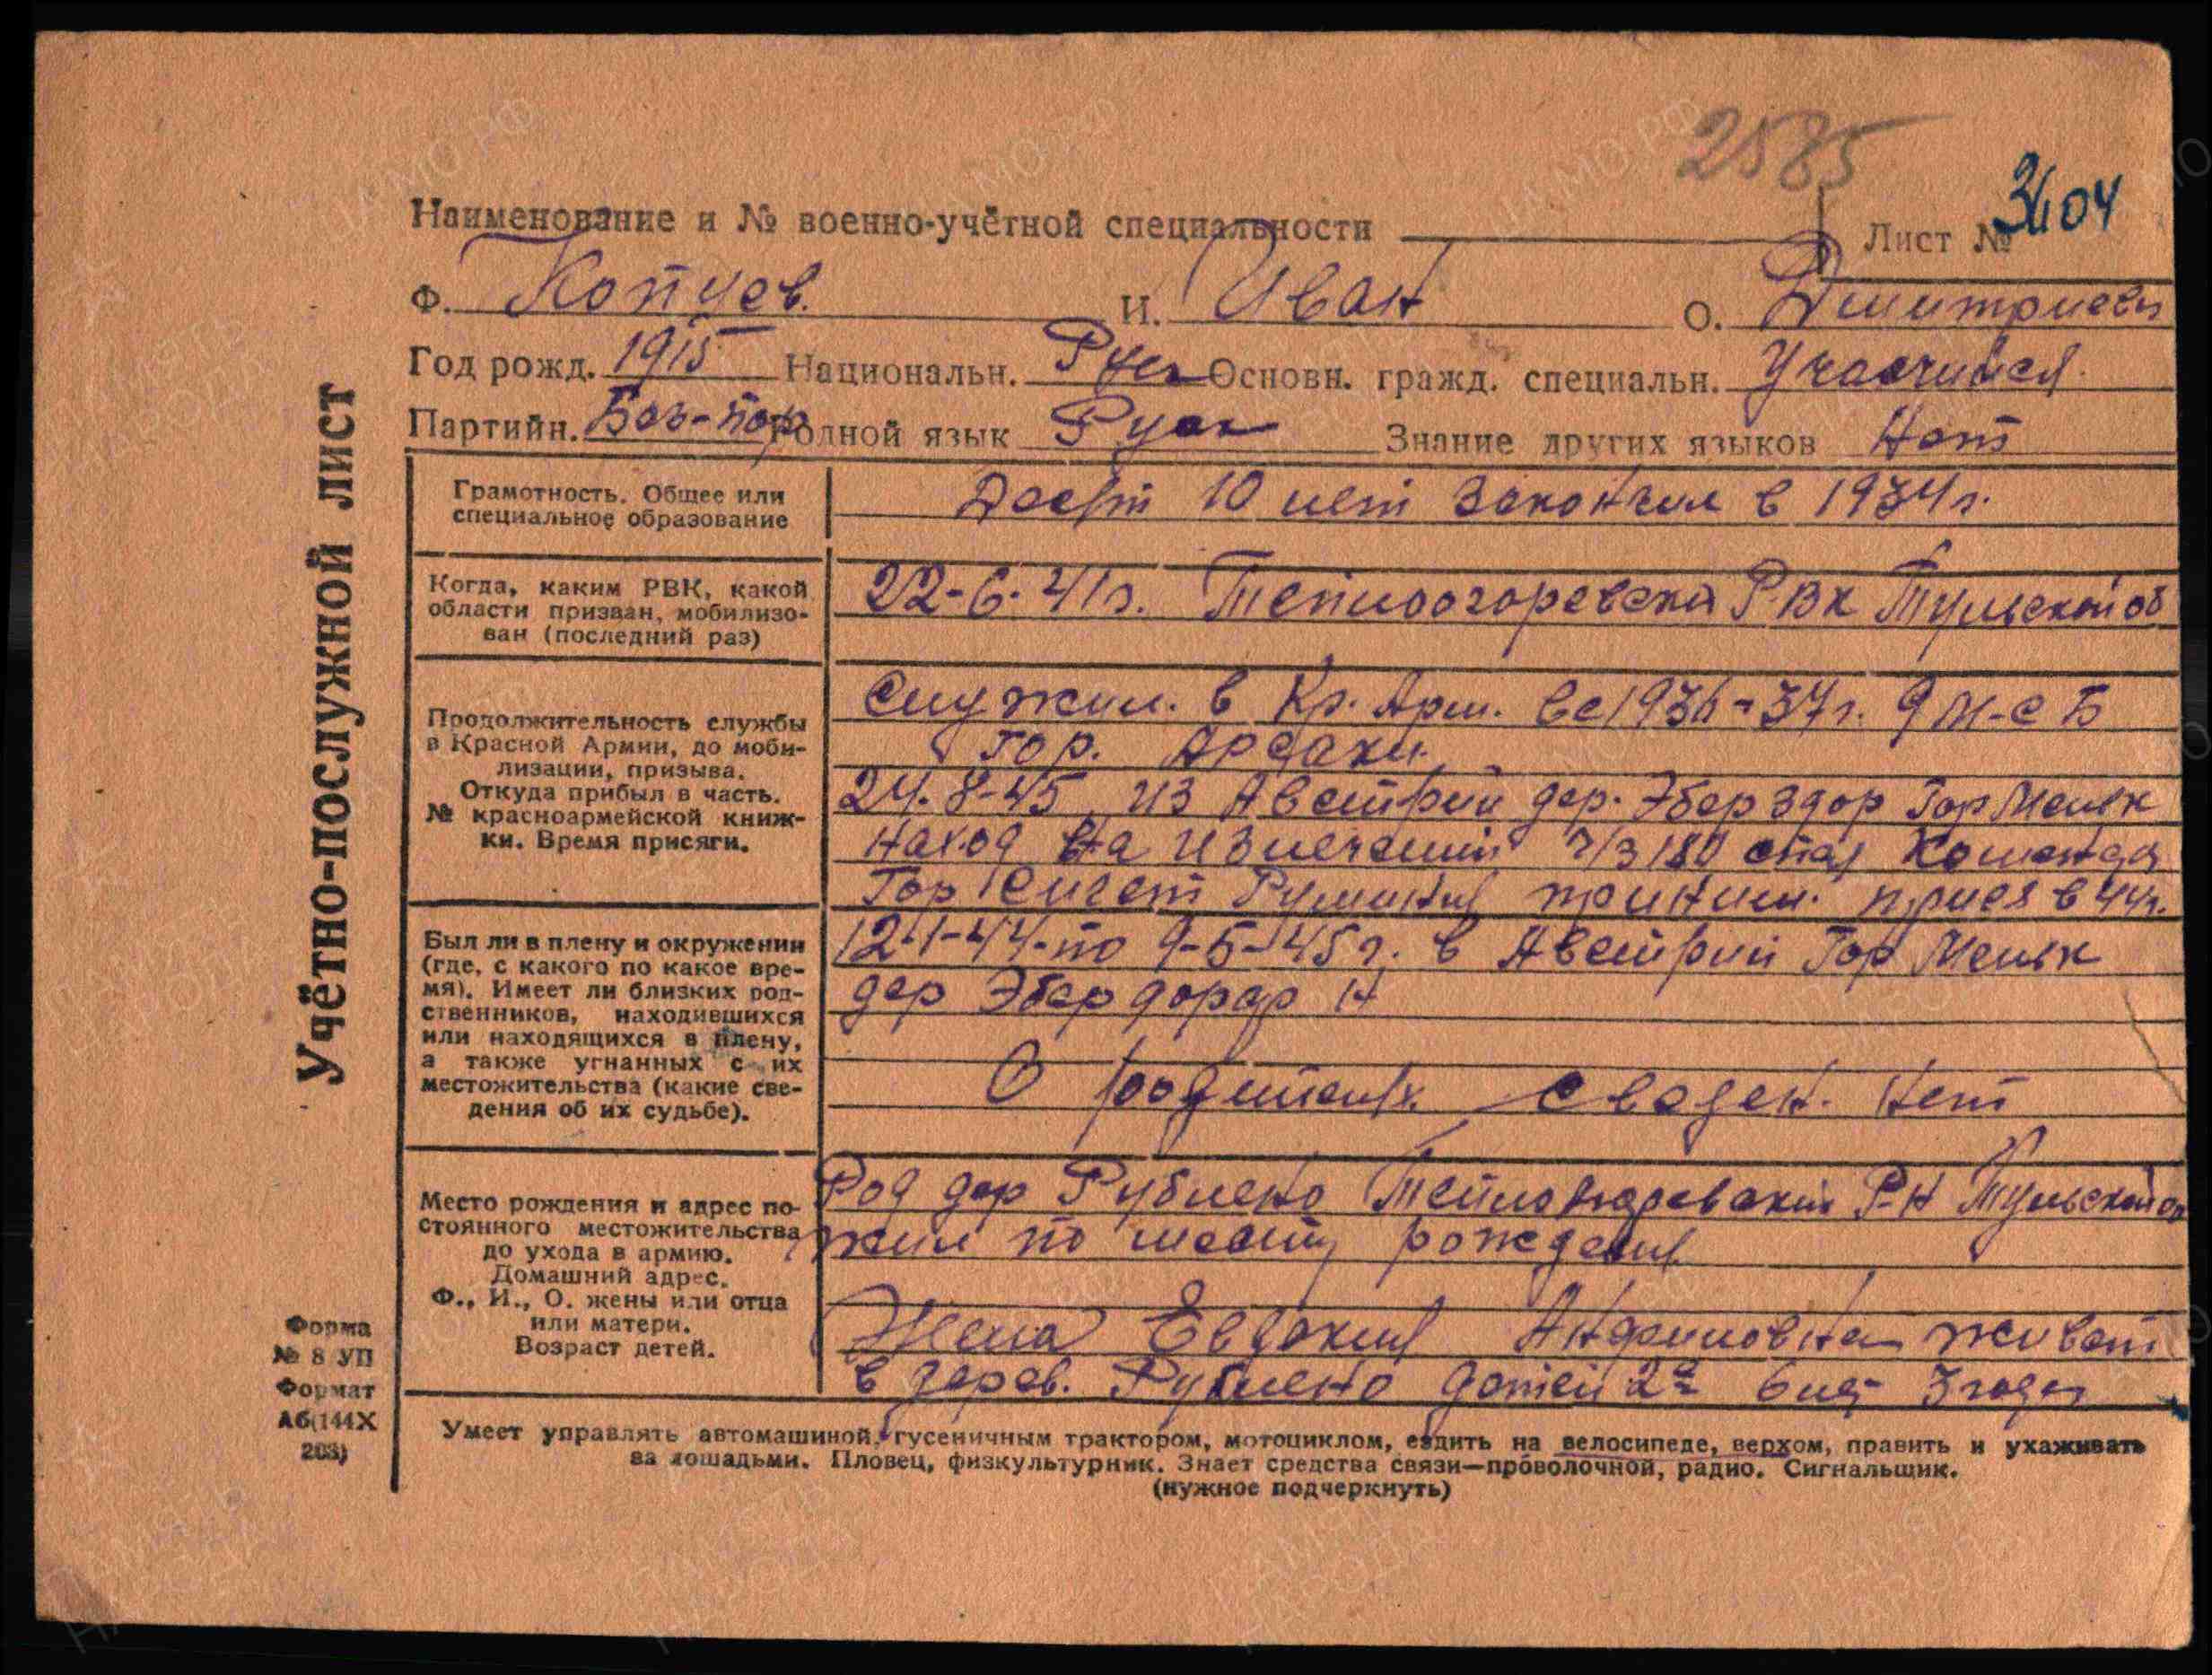 2585
Наименование и № военно-учётной специальности Лист № 3404
Ф. Копцев. И. Иван О. Дмитриеви
Год рожд. 1915 Национальн. Русс Основн. гражд. специальн.
Партийн. Бес-пар Родной язык Русс Знание других языков Нет
Учётно-послужной лист
Грамотность. Общее или
специальное образование
10 лет закончил в 1934г.
Когда, каким РВК, какой
области призван, мобилизо-
ван (последний раз)
22-6-41г. Теплоогаревски РВК Тульской об
Продолжительность службы
в Красной Армии, до моби-
лизации, призыва.
Откуда прибыл в часть.
№ красноармейской книж-
ки. Время присяги.
Служил. в Кр. Арм. 1936-37г. 9
Гор.
24-8-45 из Австрии дер. Эберздор Гор Мельк
наход на излечении
Гор Сигет Румыния приним. прися в 44г.
Был ли в плену и окружении
(где, с какого по какое вре-
мя). Имеет ли близких род-
ственников, находившихся
или находящихся в плену,
а также угнанных с их
местожительства (какие све-
дения об их судьбе).
12-1-44-по 9-5-45г. в Австрии Гор Мельк
дер
О сведен. нет
Место рождения и адрес по-
стоянного местожительства
до ухода в армию.
Домашний адрес.
Ф., И., О. жены или отца
или матери.
Возраст детей.
Род дер Рублено Р-Н Тульской об
жил по месту рождения
Жена Евдокия живет
в дерев. Рублено детей 2е 6 лет 3 года
Форма
№ 8 УП
Формат
А6(144Х
203)
Умеет управлять автомашиной, гусеничным трактором, мотоциклом, ездить на велосипеде, верхом, править и ухаживать
за лошадьми. Пловец, физкультурник. Знает средства связи—проволочной, радио. Сигнальщик.
(нужное подчеркнуть)